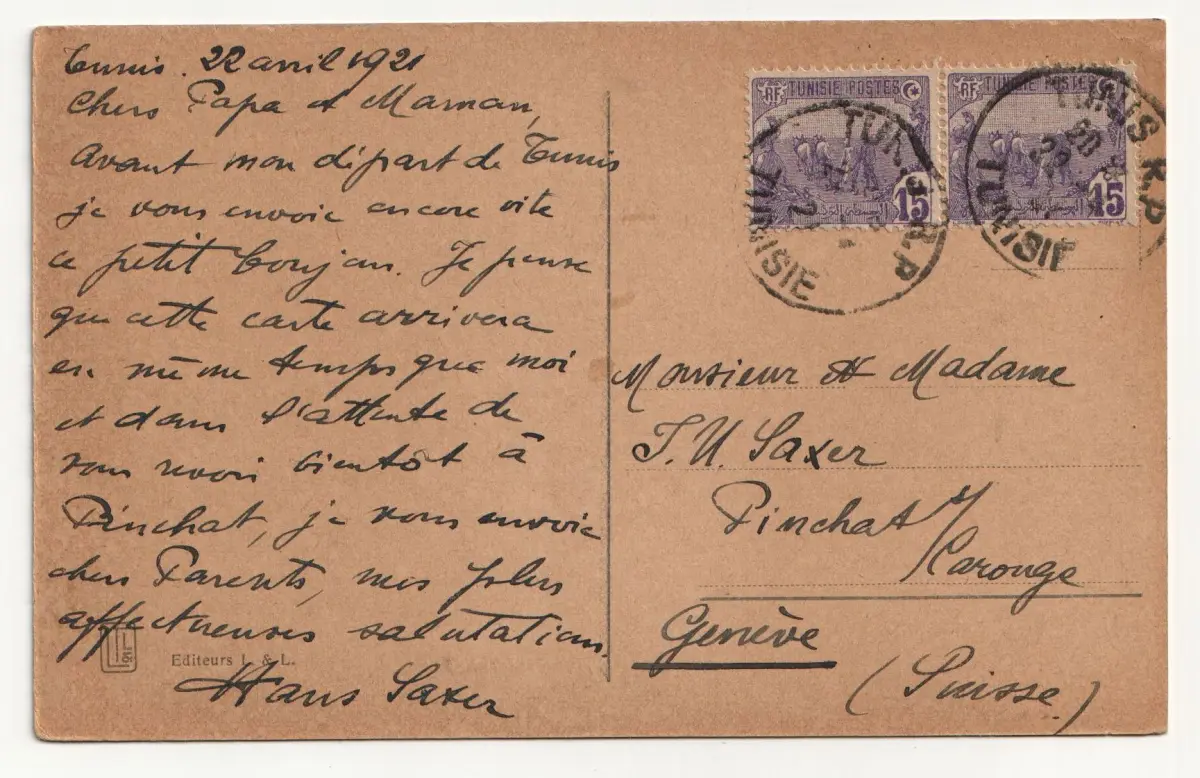 Tunis. 22 avril 1921
Chers Papa et Maman,
Avant mon départ de Tunis
je vous envoie encore vite
ce petit bonjour. Je pense
que cette carte arrivera
en même temps que moi
et dans l'attente de
vous revoir bientôt à
Pinchat, je vous envoie
chers Parents, mes plus
affectueuses salutations.
Hans Saxer
Editeurs L. & L.
RF TUNISIE POSTES
15
RF TUNISIE POSTES
15
TUNIS R.P
TUNISIE
TUNIS R.P
TUNISIE
Monsieur et Madame
J. U. Saxer
Pinchat s/
Carouge
Genève
(Suisse)